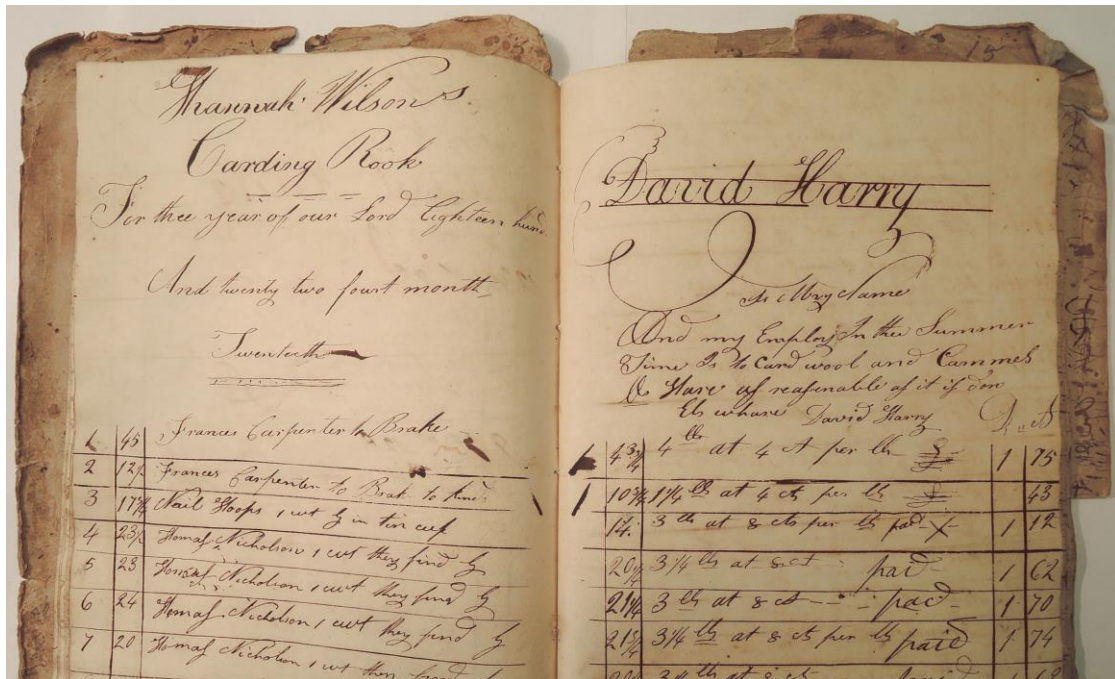 Hannah Wilsons
Carding Book
For thee year of our Lord Eighteen hund
And twenty two fourt month
Twenteth
1 45 Frances Carpenter to Brake
2 12 Frances Carpenter to Brake to
3 17 Nail Hoops 1 cut in tin cup
4 23 Tomas Nicholson 1 cut they find
5 23 Tomas Nicholson 1 cut they find
6 24 Tomas Nicholson 1 cut they find
7 20 Tomas Nicholson 1 cut
David Harry
Is My Name
And my Employ In thee Summer
Time Is to Card wool and Cammel
Hare as reasonable as it is don
Els whare David Harry
D Ct
43 3/4 4 lbs at 4 ct per lb 1 75
10 3/4 1 1/4 lb at 4 cts per lb 43
14 3 lb at 8 cts per lb paid 1 12
20 1/4 3 1/4 lb at 8 ct paid 1 62
21 1/4 3 lb at 8 ct paid 1 70
21 3/4 3 1/4 lb at 8 ct per lb paid 1 74